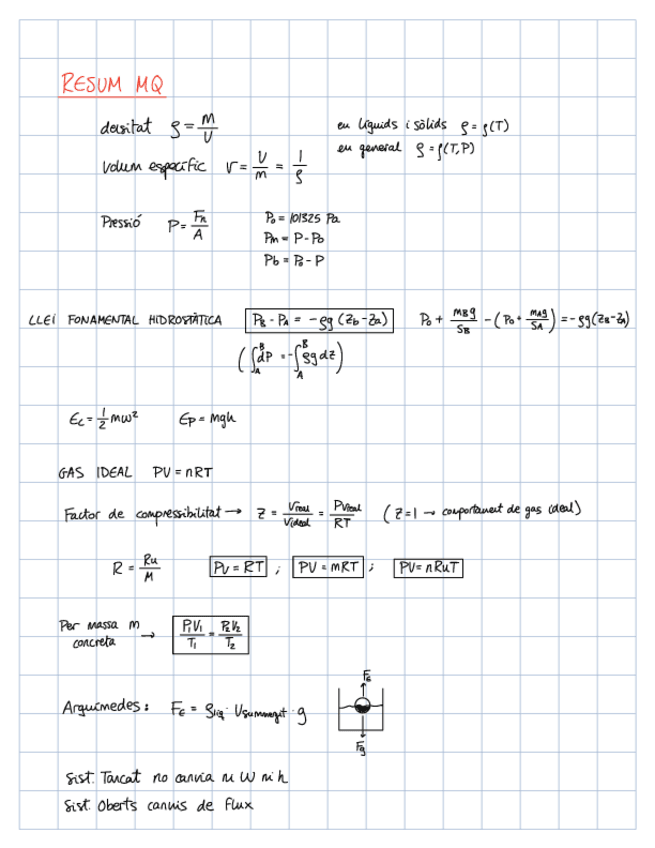 RESUM MQ
densitat ρ = m/V en líquids i sòlids ρ = ρ(T)
en general ρ = ρ(T,P)
Volum específic v = V/m = 1/ρ
Pressió P = Fn/A P₀ = 101325 Pa
Pm = P - P₀
Pb = P₀ - P
LLEI FONAMENTAL HIDROSTÀTICA P_B - P_A = -ρg (Z_b - Z_a) P₀ + m_B g/S_B - (P₀ + m_A g/S_A) = -ρg(Z_B - Z_A)
(∫_A^B dP = -∫_A^B ρg dz)
Ec = 1/2 mω² Ep = mgh
GAS IDEAL PV = nRT
Factor de compressibilitat → Z = Vreal/Videal = PVreal/RT (Z=1 → comportament de gas ideal)
R = Ru/M Pv = RT ; PV = mRT ; PV = nRuT
Per massa m concreta → P₁V₁/T₁ = P₂V₂/T₂
Arquímedes: F_E = ρ_liq · V_summergit · g
F_E
Fg
Sist. Tancat no canvia ni W ni h
Sist. Oberts canvis de flux